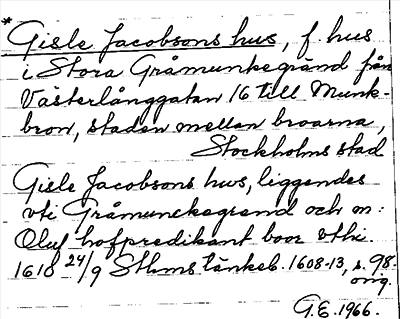 * Gisle Jacobsons hus, f. hus
i Stora Gråmunkegränd från
Västerlånggatan 16 till Munk-
bron, staden mellan broarna,
Stockholms stad
Gisle Jacobsons hws, liggendes
vti Gråmunckegrend och m:
Oluf hofpredikant boor vthi.
1610 24/9 Sthms tänkeb. 1608-13, s. 98.
orig.
G.E. 1966.